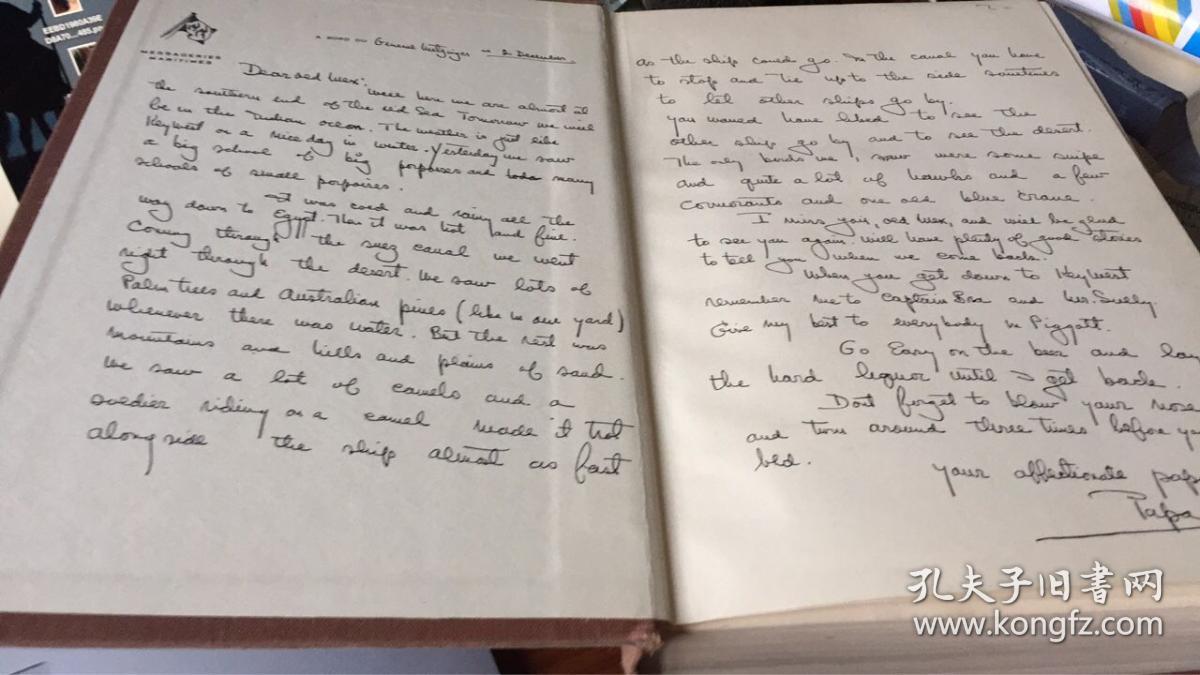 EEBD1980A39E
D8A70...485.pn
MESSAGERIES
MARITIMES
A BORD DU General Metzinger LE 2 December
Dear old Mex: well here we are almost at
the southern end of the Red Sea Tomorrow we will
be in the Indian ocean. The weather is just like
Key West on a nice day in winter. Yesterday we saw
a big school of big porpoises and today many
schools of small porpoises.
It was cold and rainy all the
way down to Egypt. Then it was hot and fine.
Coming through the suez canal we went
right through the desert. We saw lots of
Palm trees and Australian pines (like in our yard)
whenever there was water. But the rest was
mountains and hills and plains of sand.
We saw a lot of camels and a
soldier riding on a camel made it trot
alongside the ship almost as fast
as the ship could go. In the canal you have
to stop and tie up to the side sometimes
to let other ships go by.
You would have liked to see the
other ship go by and to see the desert.
The only birds we saw were some snipe
and quite a lot of hawks and a few
cormorants and one old blue crane.
I miss you, old Mex, and will be glad
to see you again. Will have plenty of good stories
to tell you when we come back.
When you get down to Key West
remember me to Captain Bra and Mr. Sully.
Give my best to everybody in Piggott.
Go Easy on the beer and
the hard liquor until I get back.
Dont forget to blow your nose
and turn around three times before
bed.
your affectionate
Papa
孔夫子旧书网
www.kongfz.com